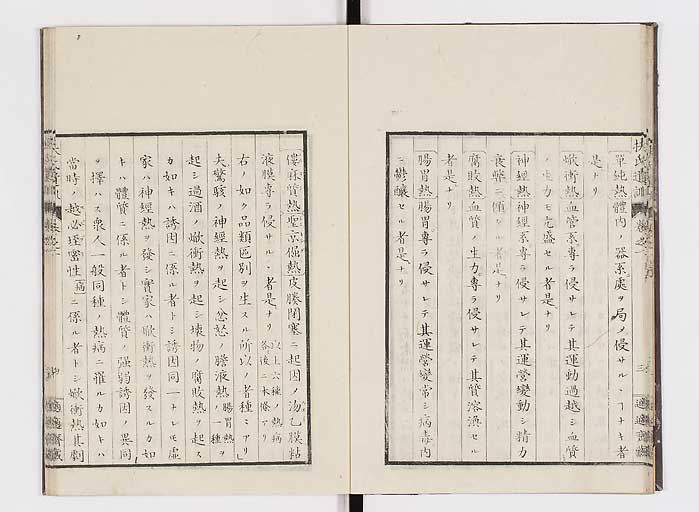 單純熱體內ノ器系處ヲ局メ侵サル丶ヿナキ者
是ナリ
焮衝熱血管系專ラ侵サレテ其運動過越シ血質
ノ生力モ亢盛セル者是ナリ
神經熱神經系專ラ侵サレテ其運營變動シ精力
衰弊ニ傾ケル者是ナリ
腐敗熱血質ノ生力專ラ侵サレテ其質溶渙セル
者是ナリ
腸胃熱腸胃專ラ侵サレテ其運營變常シ病毒內
ニ鬱釀セル者是ナリ
僂麻質熱聖京偪熱皮膚閉塞ニ起因メ湯乙膜粘
液膜專ラ侵サル丶者是ナリ 以上六種ノ熱病各後ニ本條アリ
右ノ如ク品類區別ヲ生スル所以ノ者種々アリ
夫驚駭ノ神經熱ヲ起シ忿怒ノ膽液熱 腸胃熱ノ一種 ヲ
起シ過酒ノ焮衝熱ヲ起シ壞物ノ腐敗熱ヲ起ス
カ如キハ誘因ニ係ル者トシ誘因同一ナレモ虛
家ハ神經熱ヲ發シ實家ハ焮衝熱ヲ發スルカ如
キハ體質ニ係ル者トシ體質ノ強弱誘因ノ異同
ヲ擇ハス衆人一般同種ノ熱病ニ罹ルカ如キハ
當時ノ越必垤密性 病 ニ係ル者トシ焮衝熱其劇
三
適適齋藏
適適齋藏